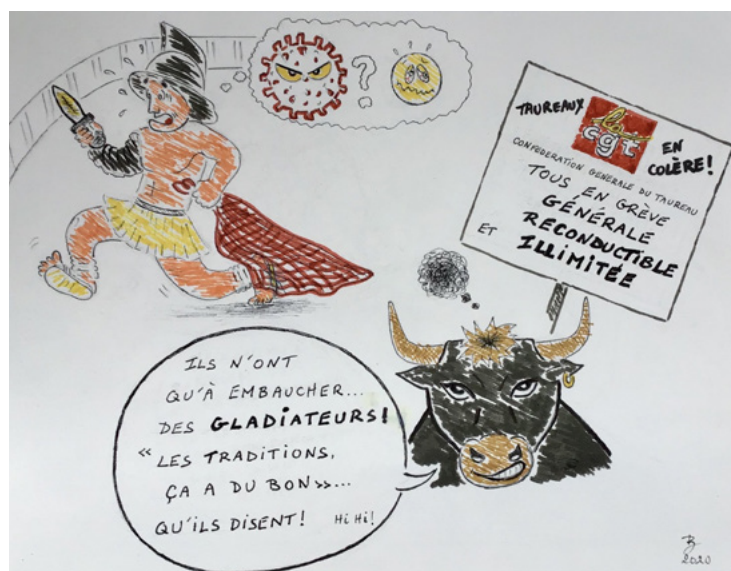 ?
TAUREAUX
la
cgt
EN
COLÈRE!
CONFEDERATION GENERALE DU TAUREAU
TOUS EN GRÈVE
GÉNÉRALE
RECONDUCTIBLE
ET ILLIMITÉE
ILS N'ONT
QU'À EMBAUCHER...
DES GLADIATEURS!
« LES TRADITIONS,
ÇA A DU BON »...
QU'ILS DISENT! Hi Hi!
2020